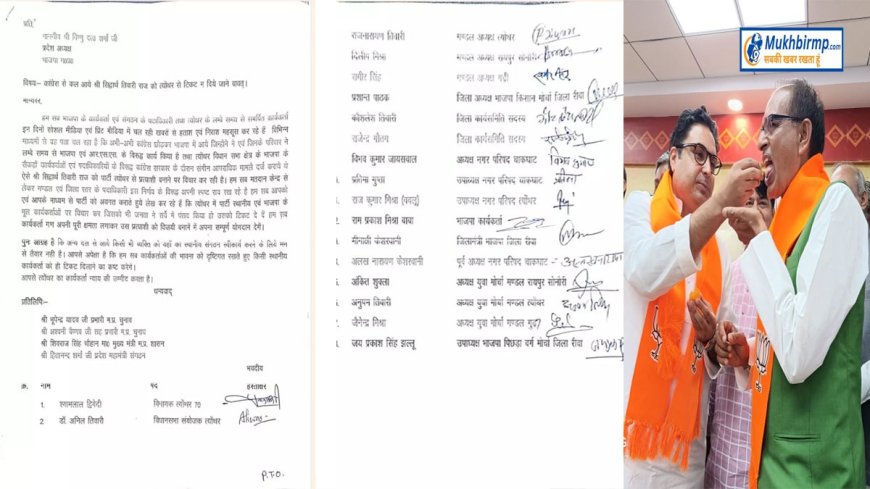 प्रति,
माननीय श्री विष्णु दत्त शर्मा जी
प्रदेश अध्यक्ष
भाजपा मध्यप्र
विषय:- कांग्रेस से कल आये श्री सिद्धार्थ तिवारी राज को त्योंथर से टिकट न दिये जाने बावत्।
मान्यवर,
हम सब भाजपा के कार्यकर्ता एवं संगठन के पदाधिकारी तथा त्योंथर के लम्बे समय से समर्पित कार्यकर्ता
इन दिनो सोशल मीडिया एवं प्रिंट मीडिया में चल रही खबरों से हताश एवं निराश महसूस कर रहे हैं विभिन्न
माध्यमों से यह पता चल रहा है कि अभी-अभी कांग्रेस छोड़कर भाजपा में आये जिन्होंने ने एवं जिनके परिवार ने
लम्बे समय से भाजपा एवं आर.एस.एस. के विरूद्ध कार्य किया है तथा त्योंथर विधान सभा क्षेत्र के भाजपा के
सैकड़ों कार्यकर्ताओं एवं पदाधिकारियों के विरूद्ध कांग्रेस सरकार के दौरान संगीन आपराधिक मामले दर्ज कराये थे
ऐसे श्री सिद्धार्थ तिवारी राज को पार्टी त्योंथर से प्रत्याशी बनाने पर विचार कर रही है। हम सब मतदान केन्द्र से
लेकर मण्डल एवं जिला स्तर के पदाधिकारी इस निर्णय के विरूद्ध अपनी स्पष्ट राय रख रहे हैं हम सब आपको
एवं आपके माध्यम से पार्टी को अवगत कराते हुये लेख कर रहे हैं कि त्योंथर में पार्टी स्थानीय एवं भाजपा के
मूल कार्यकर्ताओं पर विचार कर जिसको भी जनता ने सर्वे में पसंद किया हो उसको टिकट दे दें हम सब
कार्यकर्ता गण अपनी पूरी क्षमता लगाकर उस प्रत्याशी को विजयी बनाने में अपना सम्पूर्ण योगदान देगें।
पुनः आग्रह है कि अन्य दल से आये किसी भी व्यक्ति को यहाँ का स्थानीय संगठन स्वीकार्य करने के लिये मन
से तैयार नहीं है। आपसे अपेक्षा है कि हम सब कार्यकर्ताओं की भावना को दृष्टिगत रखते हुए किसी स्थानीय
कार्यकर्ता को ही टिकट दिलाने का कष्ट करेंगे।
आपसे त्योंथर का कार्यकर्ता न्याय की उम्मीद करता है।
धन्यवाद
प्रतिलिपि:-
श्री भूपेन्द्र यादव जी प्रभारी म.प्र. चुनाव
श्री अश्वनी वैष्णव जी सह प्रभारी म.प्र. चुनाव
श्री शिवराज सिंह चौहान मा० मुख्य मंत्री म.प्र. शासन
श्री हितानन्द शर्मा जी प्रदेश महामंत्री संगठन
भवदीय
क्र. नाम पद हस्ताक्षर
1. श्यामलाल द्विवेदी विधायक त्योंथर 70
2. डॉ. अनिल तिवारी विधानसभा संयोजक त्योंथर
P.T.O.
राजनारायण तिवारी मण्डल अध्यक्ष त्योंथर
दिलीप मिश्रा मण्डल अध्यक्ष रायपुर सोनौरी
समीर सिंह मण्डल अध्यक्ष गढ़ी
प्रशान्त पाठक जिला अध्यक्ष भाजपा किसान मोर्चा जिला रीवा
कौशलेश तिवारी जिला कार्यसमिति सदस्य
राजेन्द्र गौतम जिला कार्यसमिति सदस्य
विभव कुमार जायसवाल अध्यक्ष नगर परिषद चाकघाट
प्रतिमा गुप्ता उपाध्यक्ष नगर परिषद चाकघाट
राज कुमार मिश्रा (बबलू) उपाध्यक्ष नगर परिषद त्योंथर
राम प्रकाश मिश्रा बाबा भाजपा कार्यकर्ता
मीनाक्षी केशरवानी जिलामंत्री भाजपा जिला रीवा
अलख नारायण केशरवानी पूर्व अध्यक्ष नगर परिषद चाकघाट
अंकित शुक्ला अध्यक्ष युवा मोर्चा मण्डल रायपुर सोनौरी
अनुपम तिवारी अध्यक्ष युवा मोर्चा मण्डल त्योंथर
जैनेन्द्र मिश्रा अध्यक्ष युवा मोर्चा मण्डल गूढ़ा
जय प्रकाश सिंह झल्लू उपाध्यक्ष भाजपा पिछड़ा वर्ग मोर्चा जिला रीवा
Mukhbirmp.com
सबकी खबर रखता हूँ